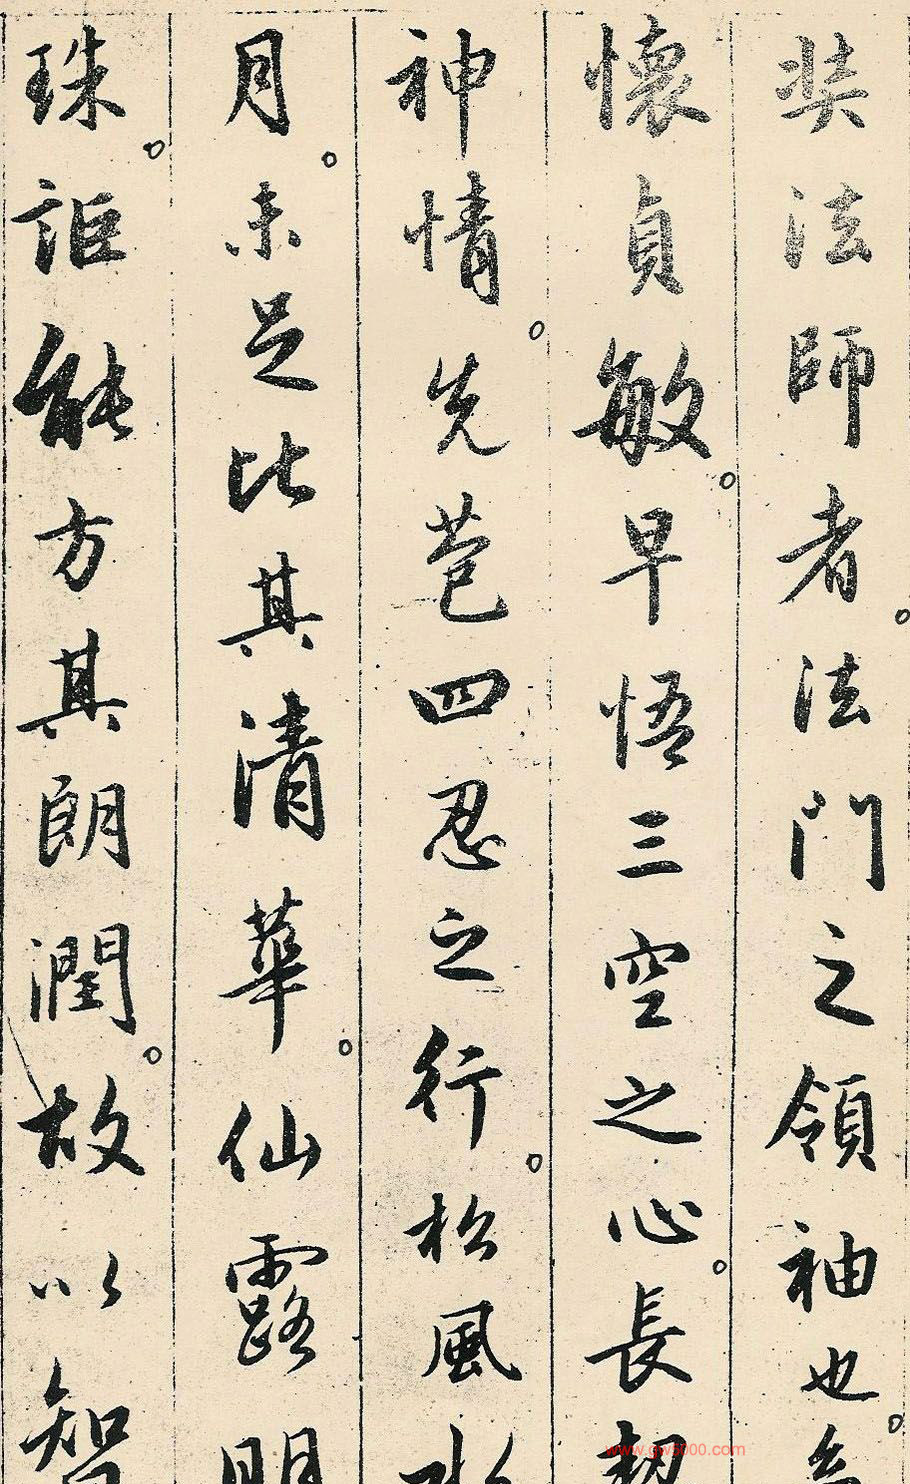 奘法師者。法門之領袖也。
懷貞敏。早悟三空之心。長契
神情。先苞四忍之行。松風水
月。未足比其清華。仙露明
珠。詎能方其朗潤。故以智